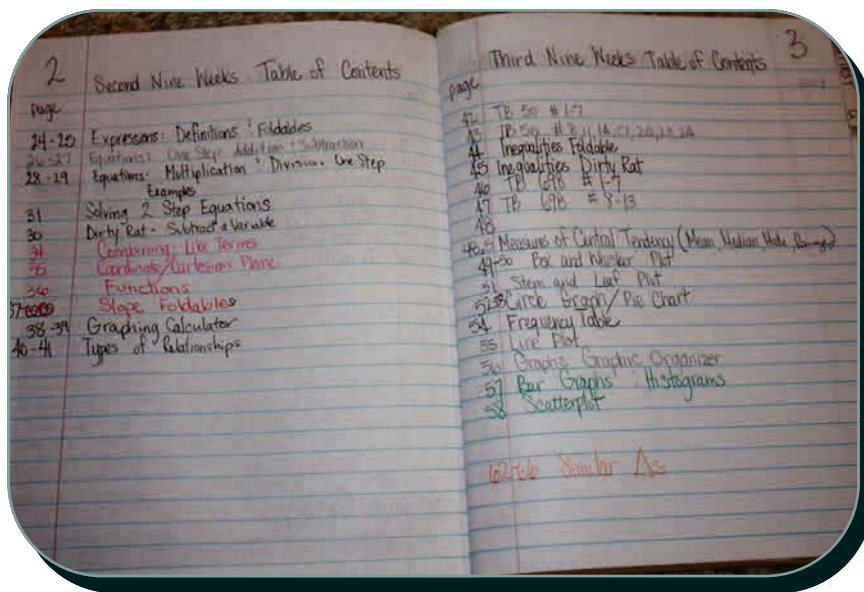 2
Second Nine Weeks Table of Contents
page
24-25 Expressions: Definitions & Foldables
26-27 Equations: One Step Addition & Subtraction
28-29 Equations: Multiplication & Division One Step
Examples
31 Solving 2 Step Equations
30 Dirty Rat - Subtract a Variable
34 Combining Like Terms
35 Coordinate/Cartesian Plane
36 Functions
37 Slope Foldables
38-39 Graphing Calculator
40-41 Types of Relationships
3
Third Nine Weeks Table of Contents
page
42 TB 50 # 1-7
43 TB 50 #
44 Inequalities Foldable
45 Inequalities Dirty Rat
46 TB 698 # 1-7
47 TB 698 # 8-13
48
48.5 Measures of Central Tendency (Mean, Median, Mode, Range)
49-50 Box and Whisker Plot
51 Stem and Leaf Plot
52-53 Circle Graph/Pie Chart
54 Frequency Table
55 Line Plot
56 Graphs Graphic Organizer
57 Bar Graphs & Histograms
58 Scatterplot
Similar Δs